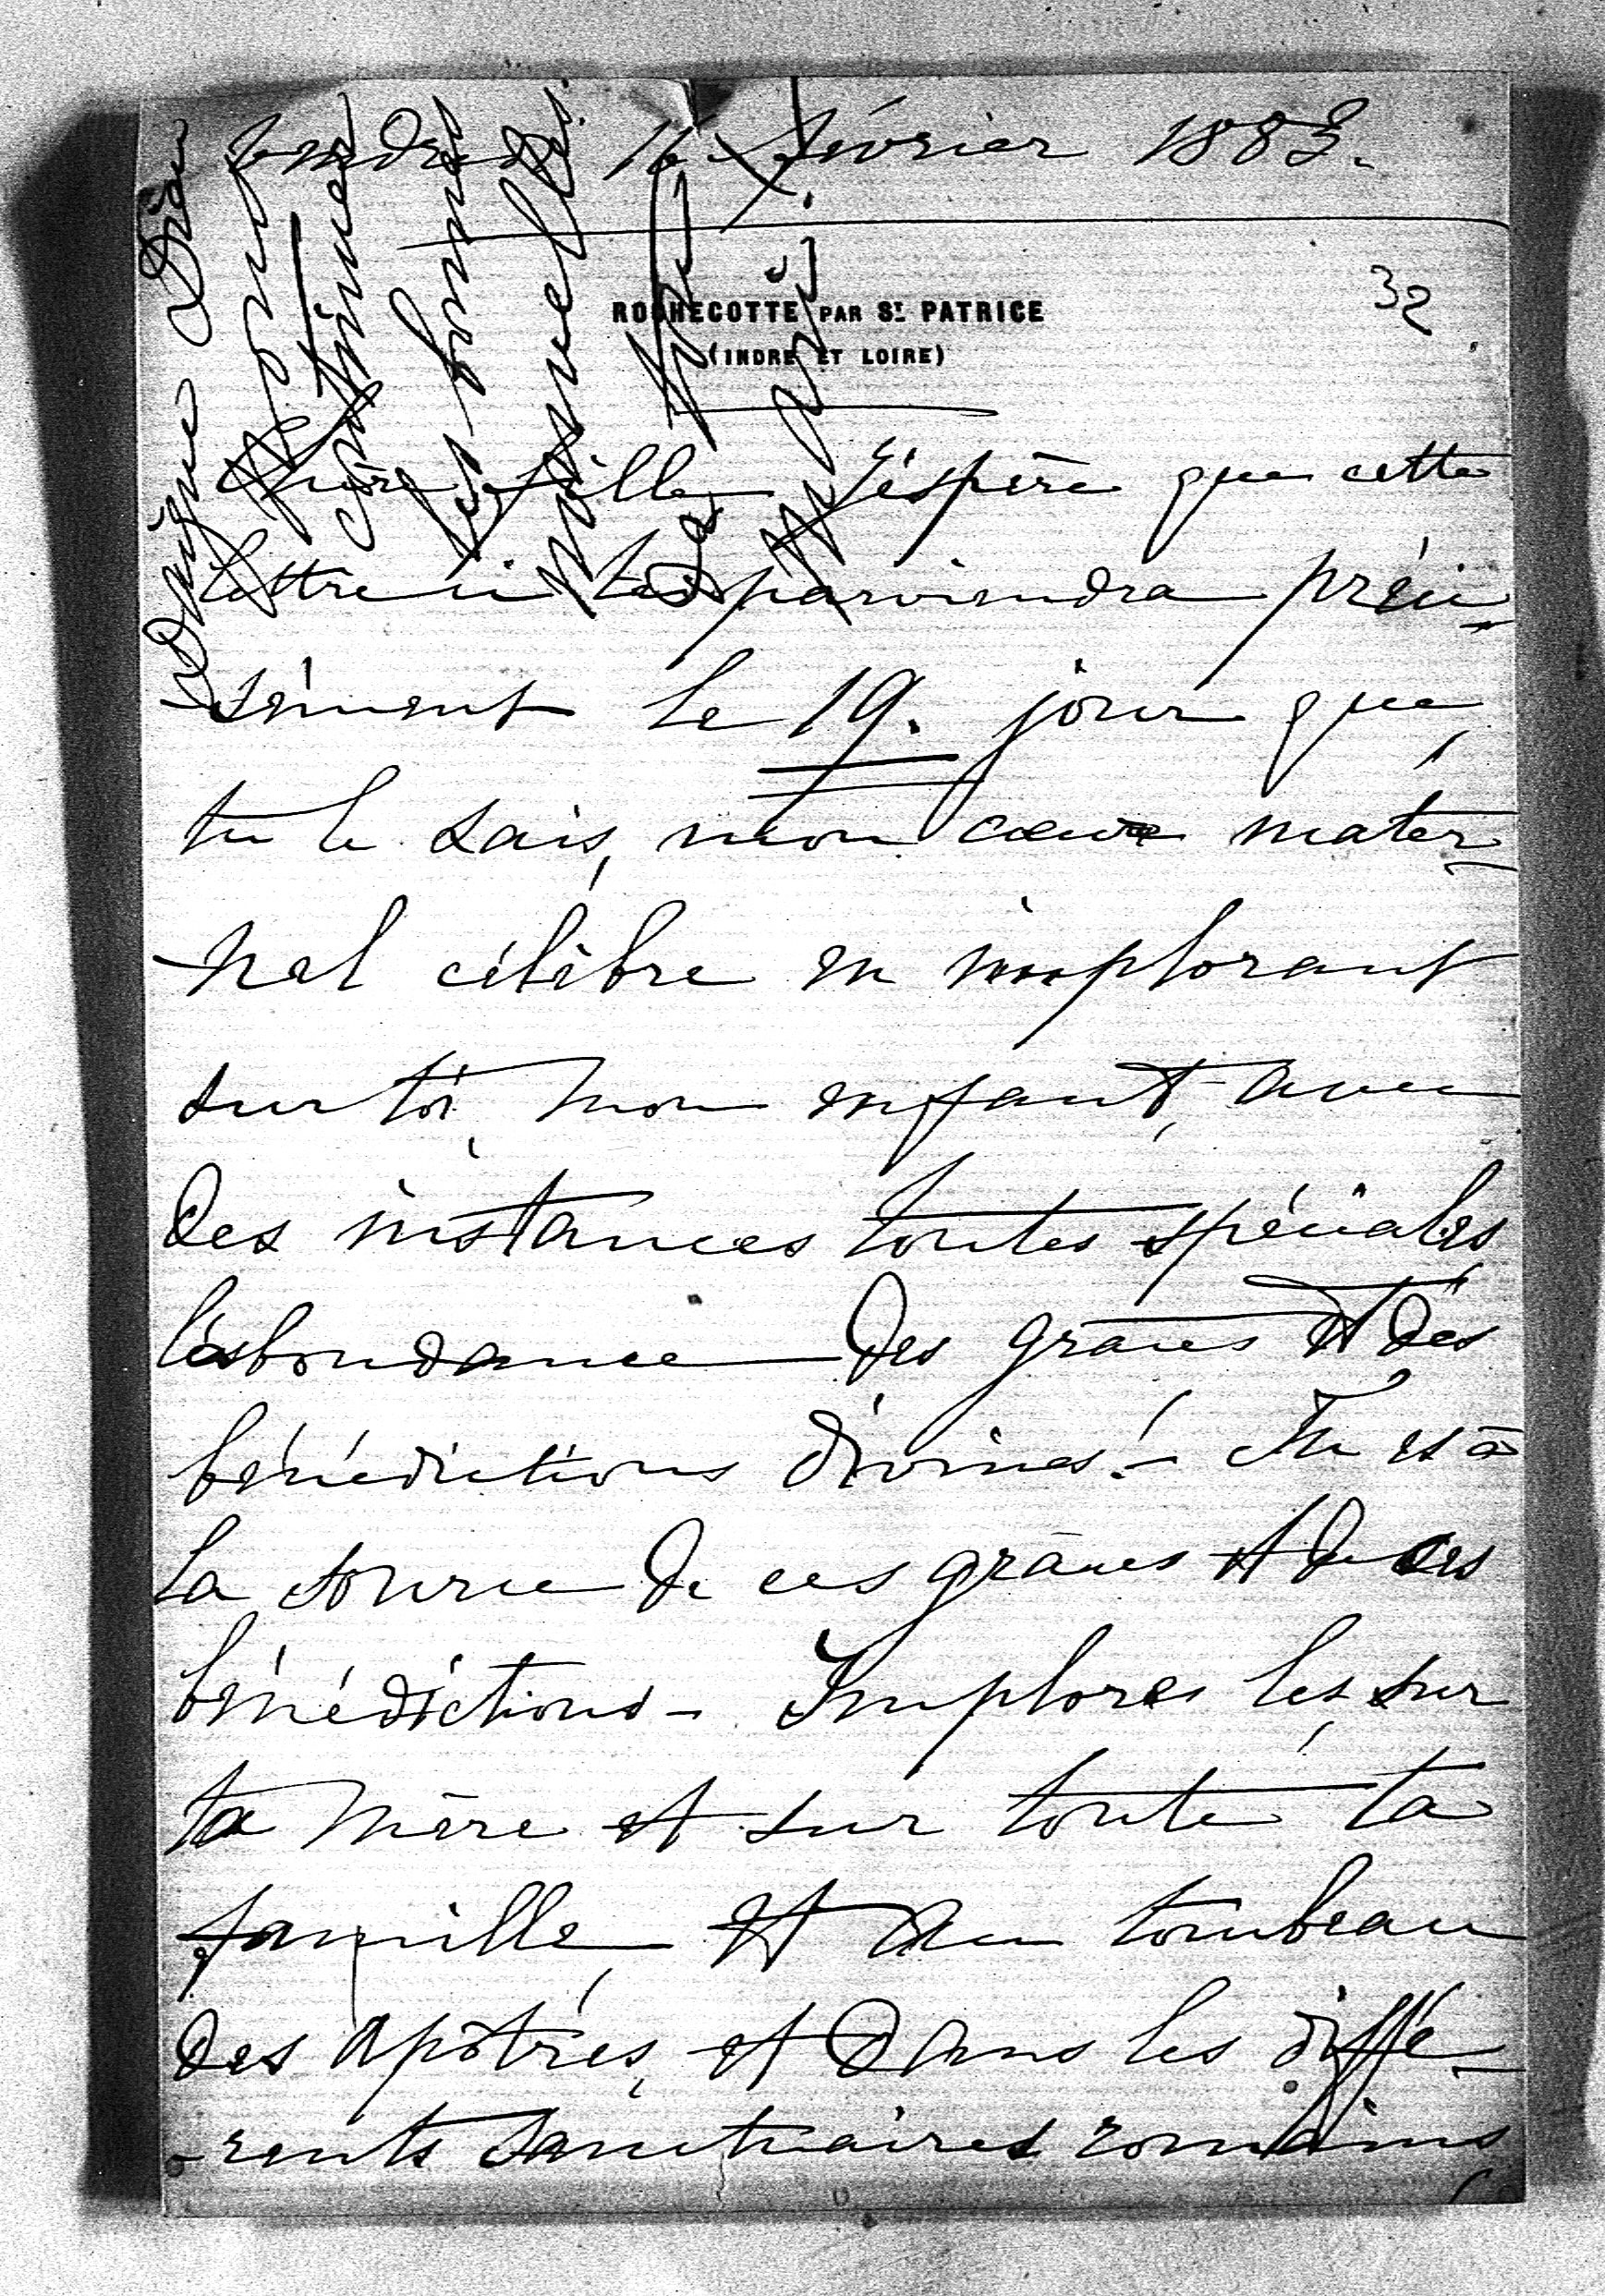 Vendredi 16 février 1883.
32
ROCHECOTTE PAR ST. PATRICE
(INDRE ET LOIRE)
Chère fille, J'éspère que cette
lettre ci te parviendra préci
sément le 19. jour que,
tu le sais, mon cœur mater
nel célèbre en implorant
sur toi, mon enfant, avec
des instances toutes spéciales
l'abondance des grâces et des
bénédictions divines! - Tu es à
la source de ces grâces et de ces
bénédictions - Implores les, sur
ta mère et sur toute ta
famille, et au tombeau
des apôtres, et dans les diffé
rents sanctuaires romains
Daigne Dieu
continuer
les bonnes
nouvelles
de